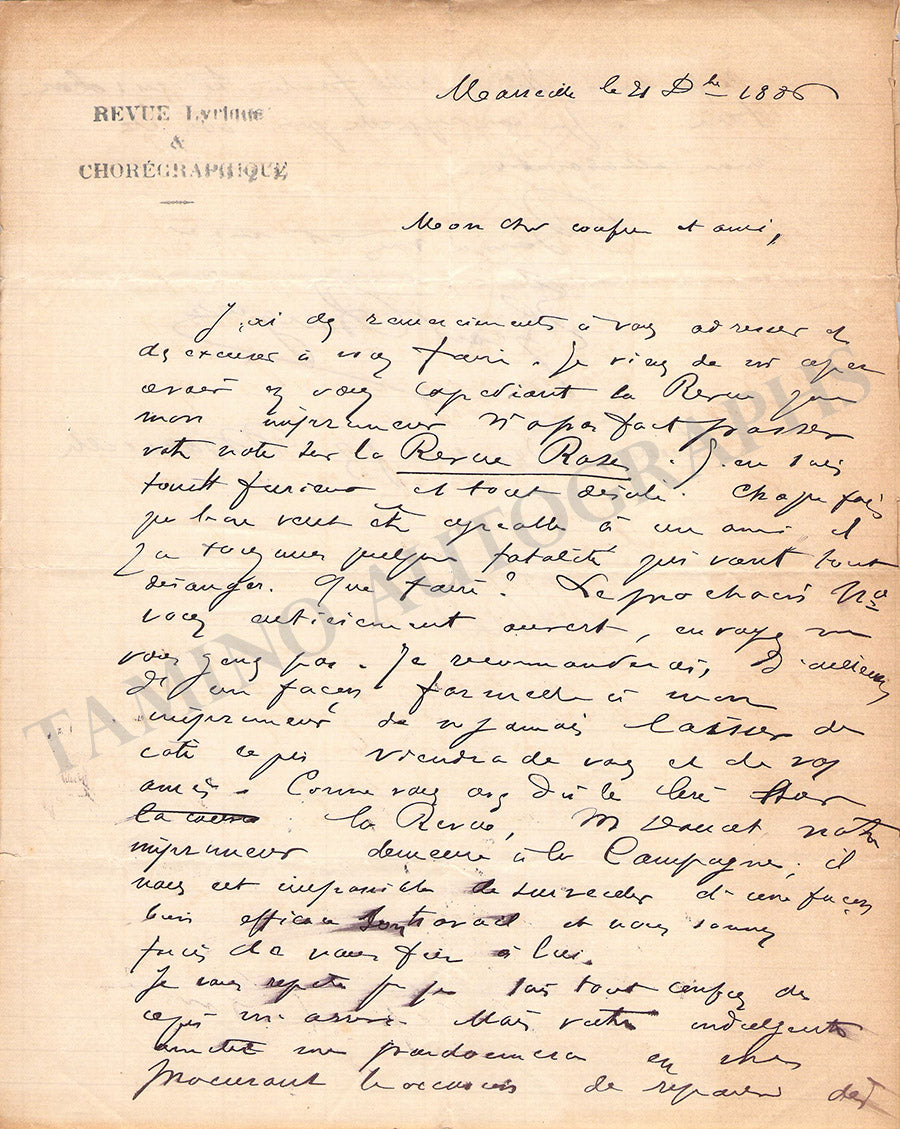 REVUE Lyrique
&
CHORÉGRAPHIQUE
Marseille le 21 Dbre 1886
Mon cher confrère et ami,
J'ai des remerciments à vous adresser et
des excuses à vous faire. Je viens de m'aperce
avoir en vous expédiant la Revue que
mon imprimeur n'a pas fait passer
votre note sur la Revue Rose. J'en suis
tout furieux et tout désolé. Chaque fois
que l'on veut être agréable à un ami il
y a toujours quelque fatalité qui vient tout
déranger. Que faire? Le prochain No
vous entièrement ouvert, envoyez ne
vous gênez pas. Je recommanderai, d'ailleurs
d'une façon formelle à mon
imprimeur de ne jamais laisser de
côté ce qui viendra de vous et de vos
amis. Comme vous avez dû le lire sur
la Revue, Mr Doucet notre
imprimeur demeure à la Campagne, il
nous est impossible de surveiller d'une façon
bien efficace son travail et nous sommes
forcés de nous fier à lui.
Je vous répète que je suis tout confus de
ce qui m'arrive. Mais votre indulgente
amitié me pardonnera en me
procurant l'occasion de réparer
TAMINO AUTOGRAPHS